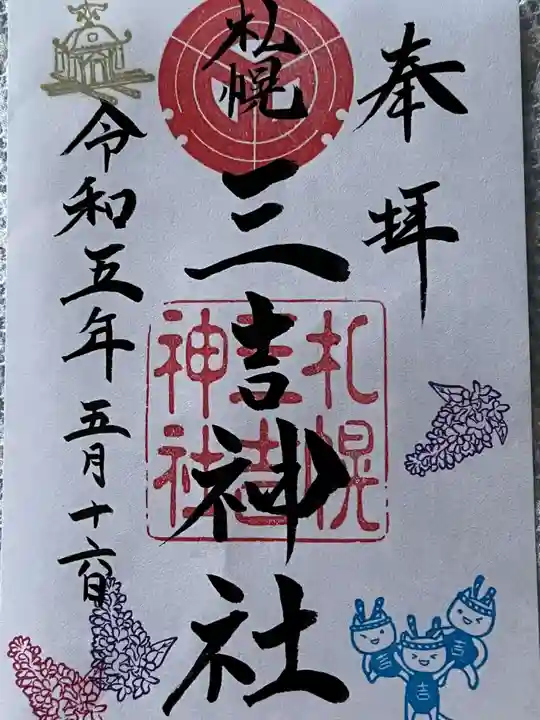 奉拝
札幌
三吉神社
札幌
三吉
神社
令和五年
五月十六日
吉
吉
吉